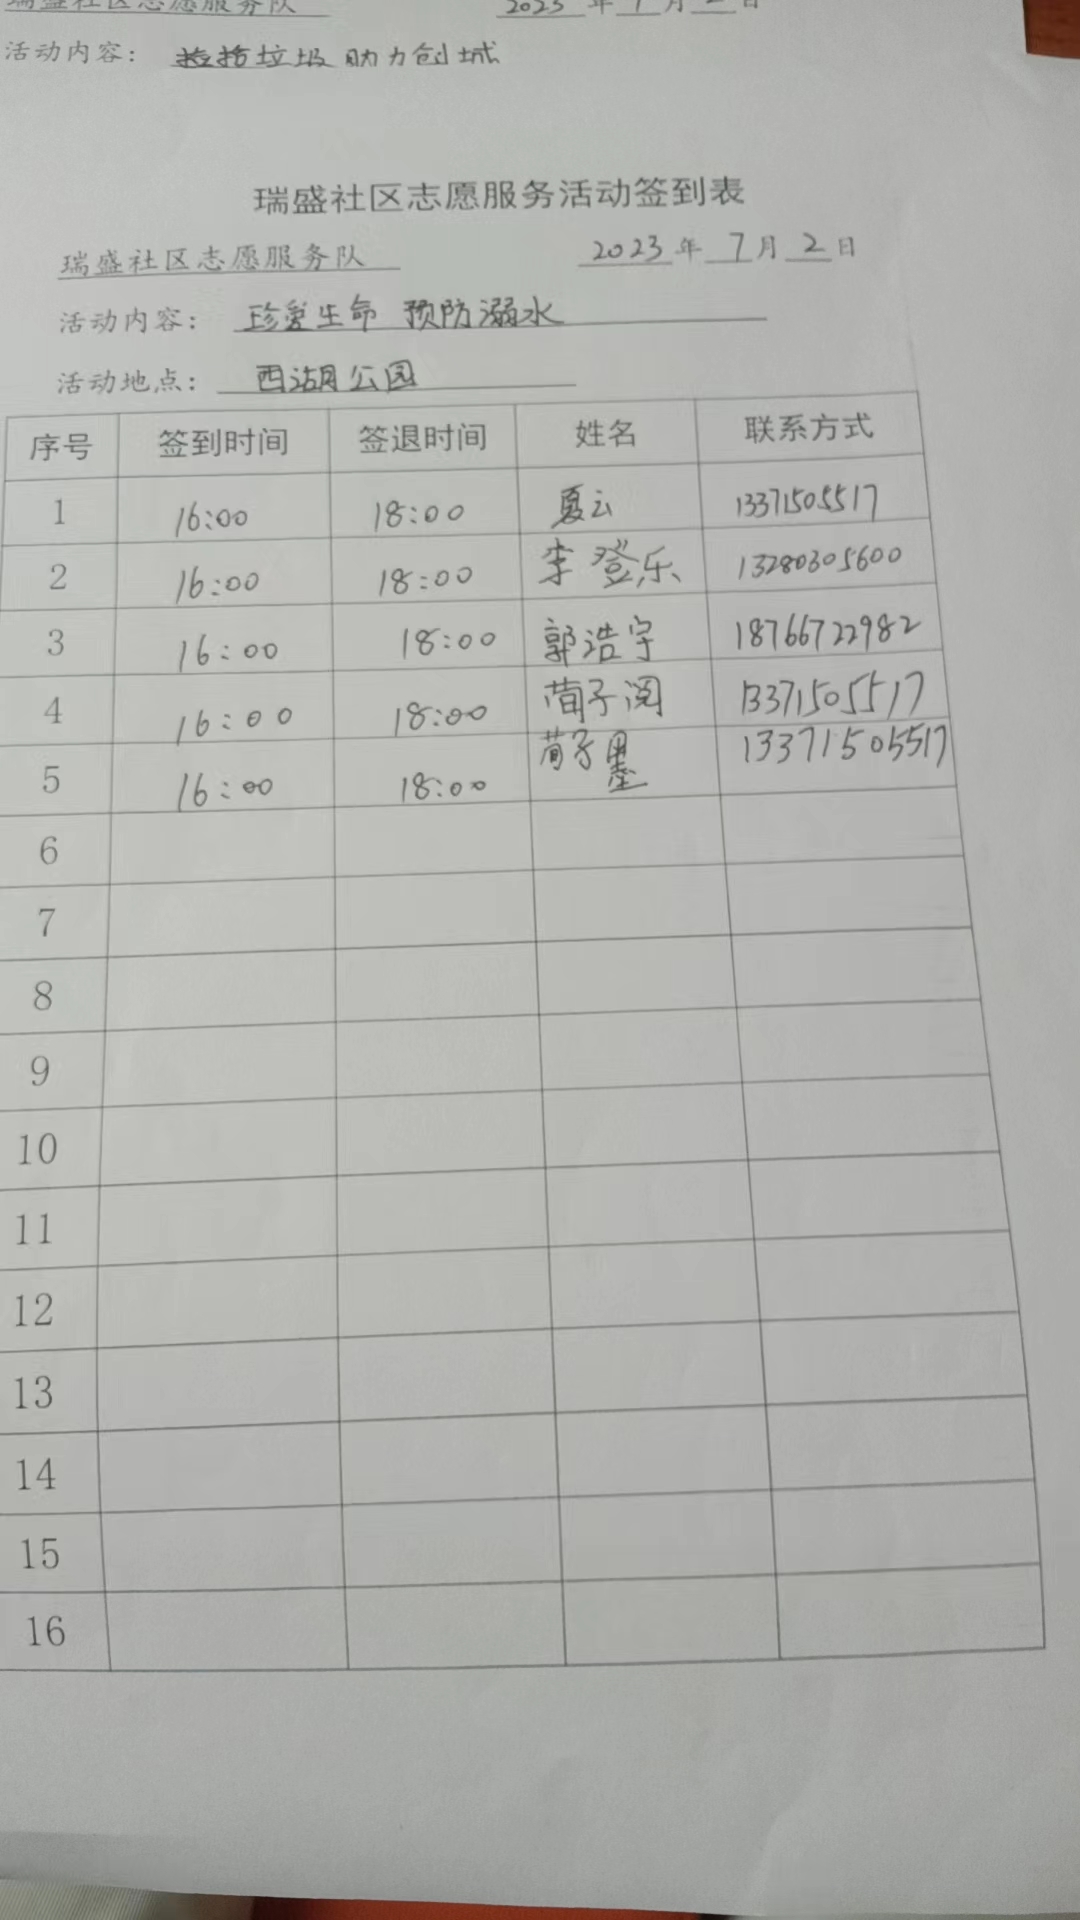 瑞盛社区志愿服务队 2023年7月2日
活动内容： 捡拾垃圾 助力创城
瑞盛社区志愿服务活动签到表
瑞盛社区志愿服务队 2023年7月2日
活动内容： 珍爱生命 预防溺水
活动地点： 西湖公园
序号 签到时间 签退时间 姓名 联系方式
1 16:00 18:00 夏云 13371505517
2 16:00 18:00 李登乐 13280305600
3 16:00 18:00 郭浩宇 18766722982
4 16:00 18:00 荀子阅 13371505517
5 16:00 18:00 荀子墨 13371505517
6
7
8
9
10
11
12
13
14
15
16